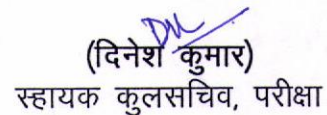 (दिनेश कुमार)
स्हायक कुलसचिव, परीक्षा